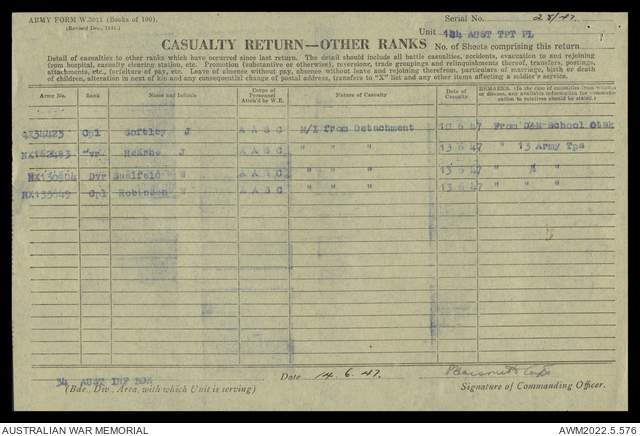 ARMY FORM W.3011 (Books of 100).
(Revised Dec., 1941.)
Serial No. 28/47.
Unit AUST TPT PL
CASUALTY RETURN—OTHER RANKS
No. of Sheets comprising this return
Detail of casualties to other ranks which have occurred since last return. The detail should include all battle casualties, accidents, evacuation to and rejoining
from hospital, casualty clearing station, etc. Promotion (substantive or otherwise), reversions, trade groupings and relinquishments thereof, transfers, postings,
attachments, etc., forfeiture of pay, etc. Leave of absence without pay, absence without leave and rejoining therefrom, particulars of marriage, birth or death
of children, alteration in next of kin and any consequential change of postal address, transfers to "X" list and any other items affecting a soldier's service.
Army No. Rank Name and Initials Corps of Personnel Attach'd by W.E. Nature of Casualty Date of Casualty REMARKS. (In the case of casualties from wounds or disease, any available information for communication to relatives should be stated.)
Cpl Softley J A A S C M/I from Detachment 10 6 47 From D&M School Otak
Dvr Hearne J A A S C " " " 13 6 47 " 13 Army Tps
Dvr W A A S C " " " 13 6 47 " " "
NX135049 Cpl Robinson W A A S C " " " 13 6 47 " " "
34 AUST INF BDE
(Bde., Div., Area, with which Unit is serving)
Date 14. 6. 47.
Capt
Signature of Commanding Officer.
AUSTRALIAN WAR MEMORIAL
AWM2022.5.576